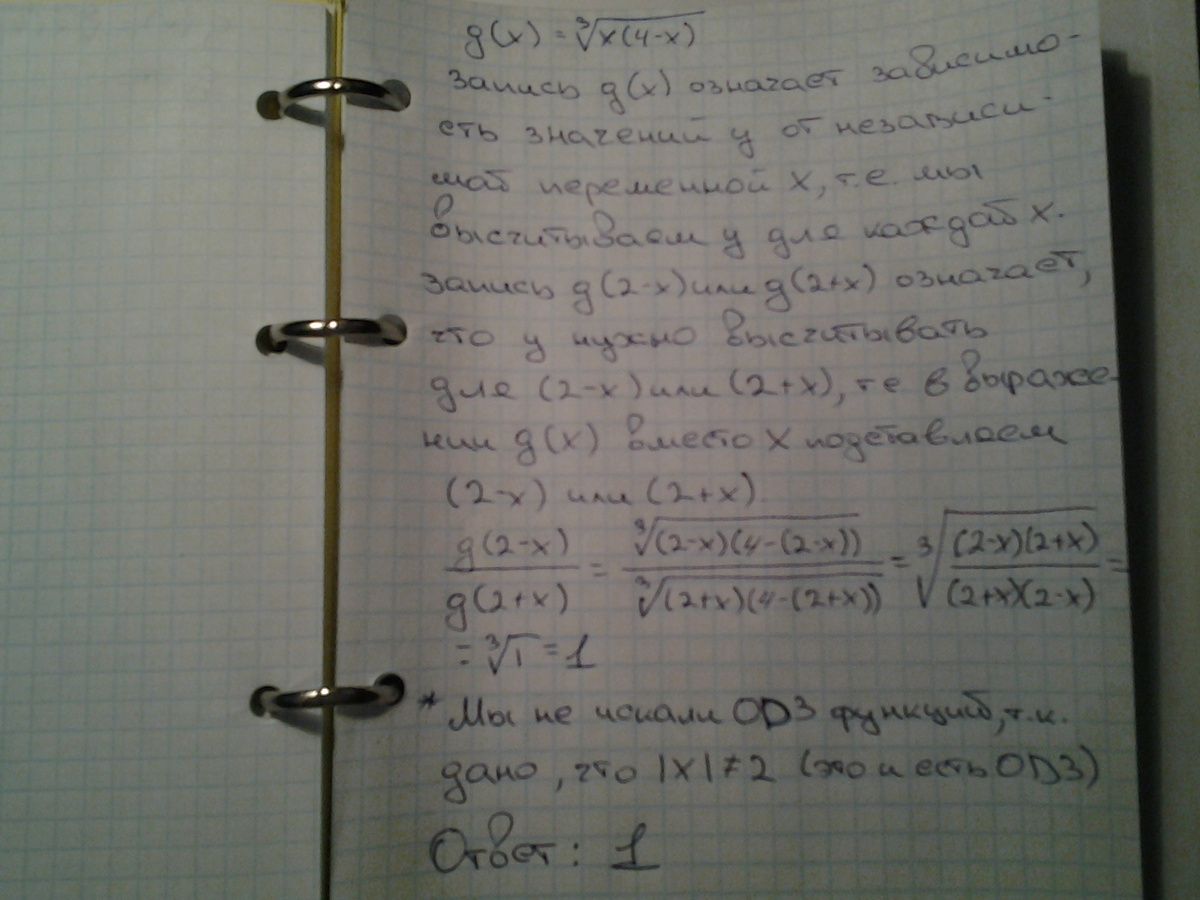 g(x) = ∛(x(4-x))
Запись g(x) означает зависимо-
сть значений y от независи-
мой переменной x, т.е. мы
высчитываем y для каждой x.
Запись g(2-x) или g(2+x) означает,
что y нужно высчитывать
для (2-x) или (2+x), те в выраже-
нии g(x) вместо x подставляем
(2-x) или (2+x).
g(2-x)/g(2+x) = ∛((2-x)(4-(2-x)))/∛((2+x)(4-(2+x))) = ∛((2-x)(2+x)/(2+x)(2-x)) =
= ∛1 = 1
* Мы не искали ОДЗ функций, т.к.
дано, что |x|≠2 (это и есть ОДЗ)
Ответ: 1